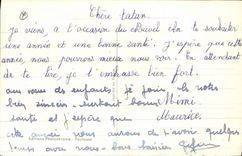 Chère tatan.
Je viens, à l'occasion du Nouvel An te souhaiter
une année et une bonne santé. J'espère que cette
année, nous pourrons mieux nous voir. En attendant
de te lire, je t'embrasse bien fort.
aux voeux des enfants je joins les notres
bien sincères surtout bonne Mimi
santé et j'espère que Maurice.
cette année nous aurons de t'avoir quelques
jours avec nous